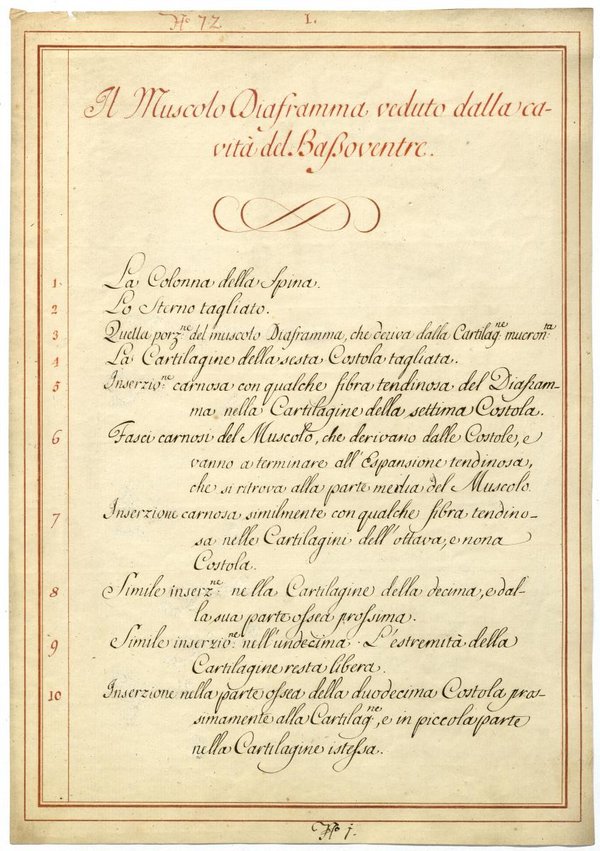 Nº 72. I.
Il Muscolo Diaframma veduto dalla ca-
vità del Baßoventre.
1 La Colonna della Spina.
2 Lo Sterno tagliato.
3 Quella porz.ne del muscolo Diaframma, che deriva dalla Cartilag.ne mucron.ta
4 La Cartilagine della sesta Costola tagliata.
5 Inserzio.ne carnosa con qualche fibra tendinosa del Diafram-
ma nella Cartilagine della settima Costola.
6 Fasci carnosi del Muscolo, che derivano dalle Costole, e
vanno a terminare all'Espansione tendinosa,
che si ritrova alla parte media del Muscolo.
7 Inserzione carnosa similmente con qualche fibra tendino-
sa nelle Cartilagini dell'ottava, e nona
Costola.
8 Simile inserz.ne nella Cartilagine della decima, e dal-
la sua parte ossea prossima.
9 Simile inserzio.ne nell'undecima. L'estremità della
Cartilagine resta libera.
10 Inserzione nella parte ossea della duodecima Costola pros-
simamente alla Cartilag.ne, e in piccola parte
nella Cartilagine istessa.
Nº 1.